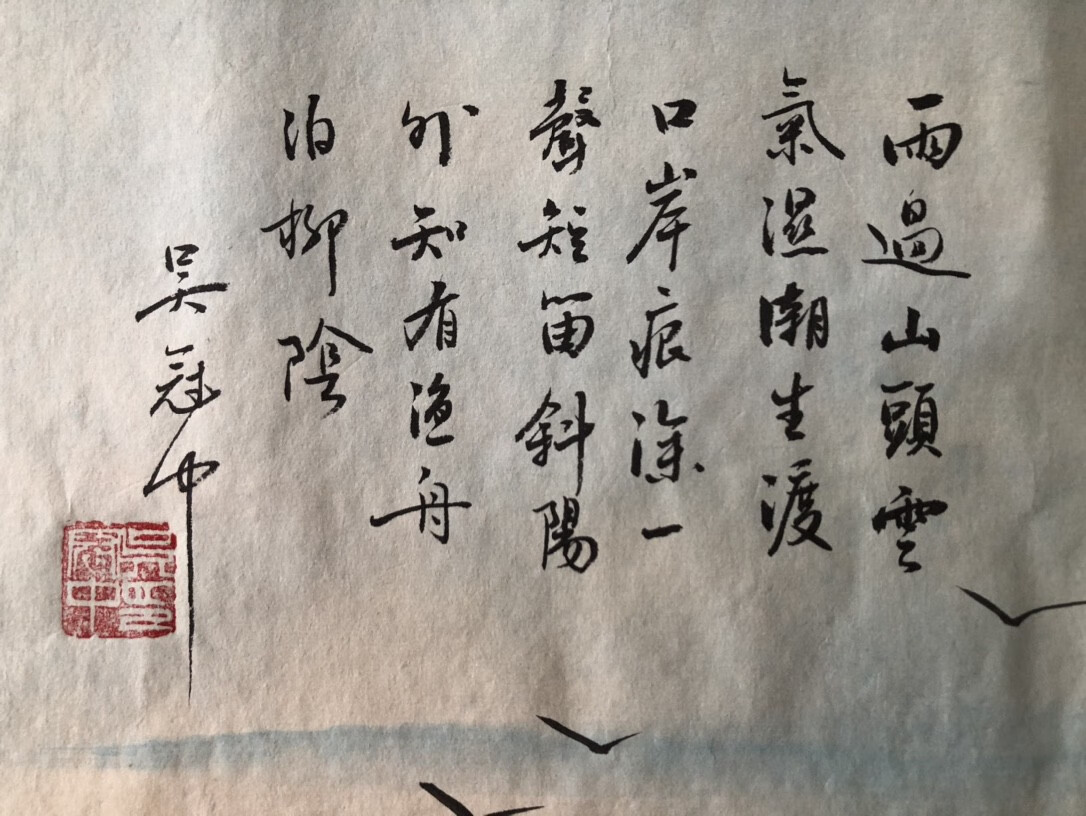 雨過山頭雲
氣濕潮生渡
口岸痕深一
聲短笛斜陽
外知有漁舟
泊柳陰
吳冠中
吳冠中印